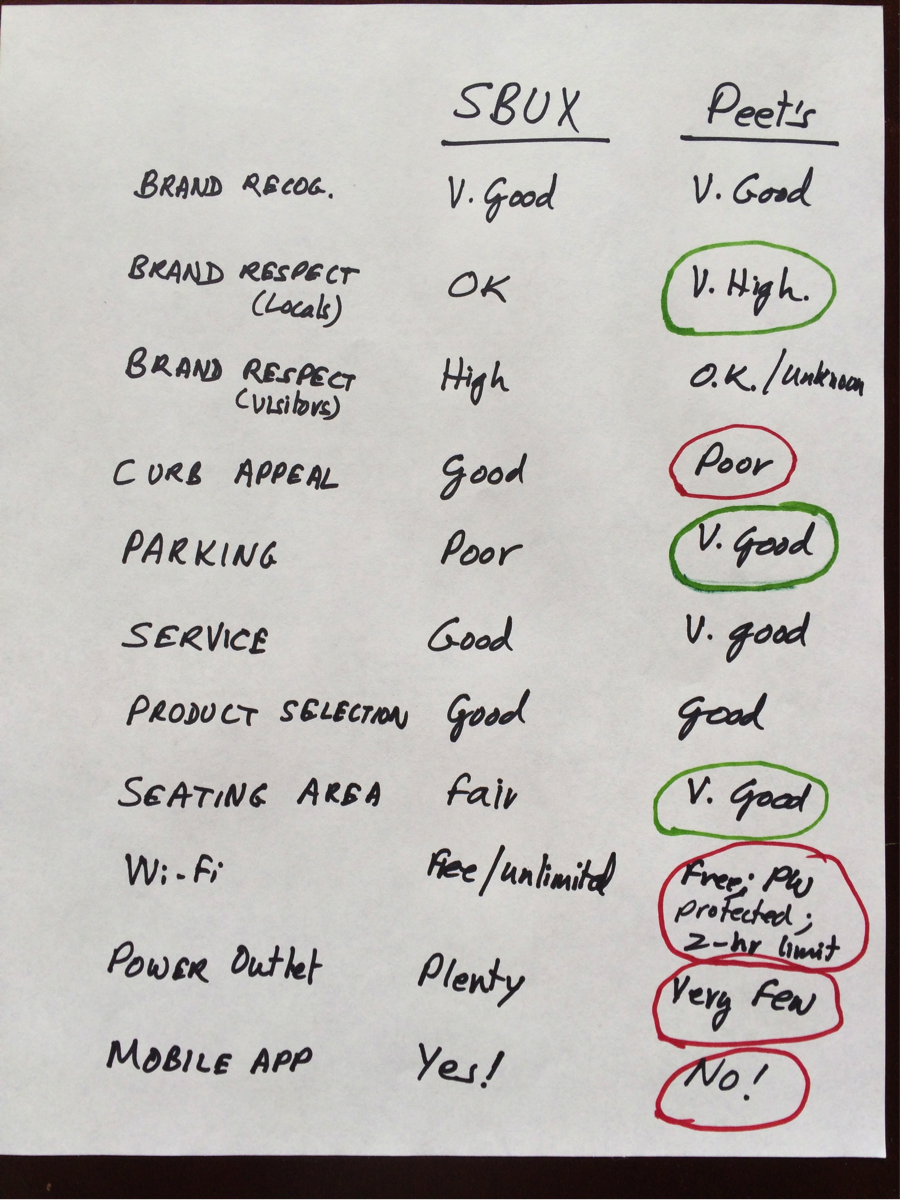 SBUX Peet's
BRAND RECOG. V. Good V. Good
BRAND RESPECT OK V. High.
(Locals)
BRAND RESPECT High O.K./Unknown
(Visitors)
CURB APPEAL Good Poor
PARKING Poor V. Good
SERVICE Good V. good
PRODUCT SELECTION Good Good
SEATING AREA Fair V. Good
Wi-Fi Free/unlimited Free; PW
protected;
2-hr limit
POWER Outlet Plenty Very Few
MOBILE APP Yes! No!